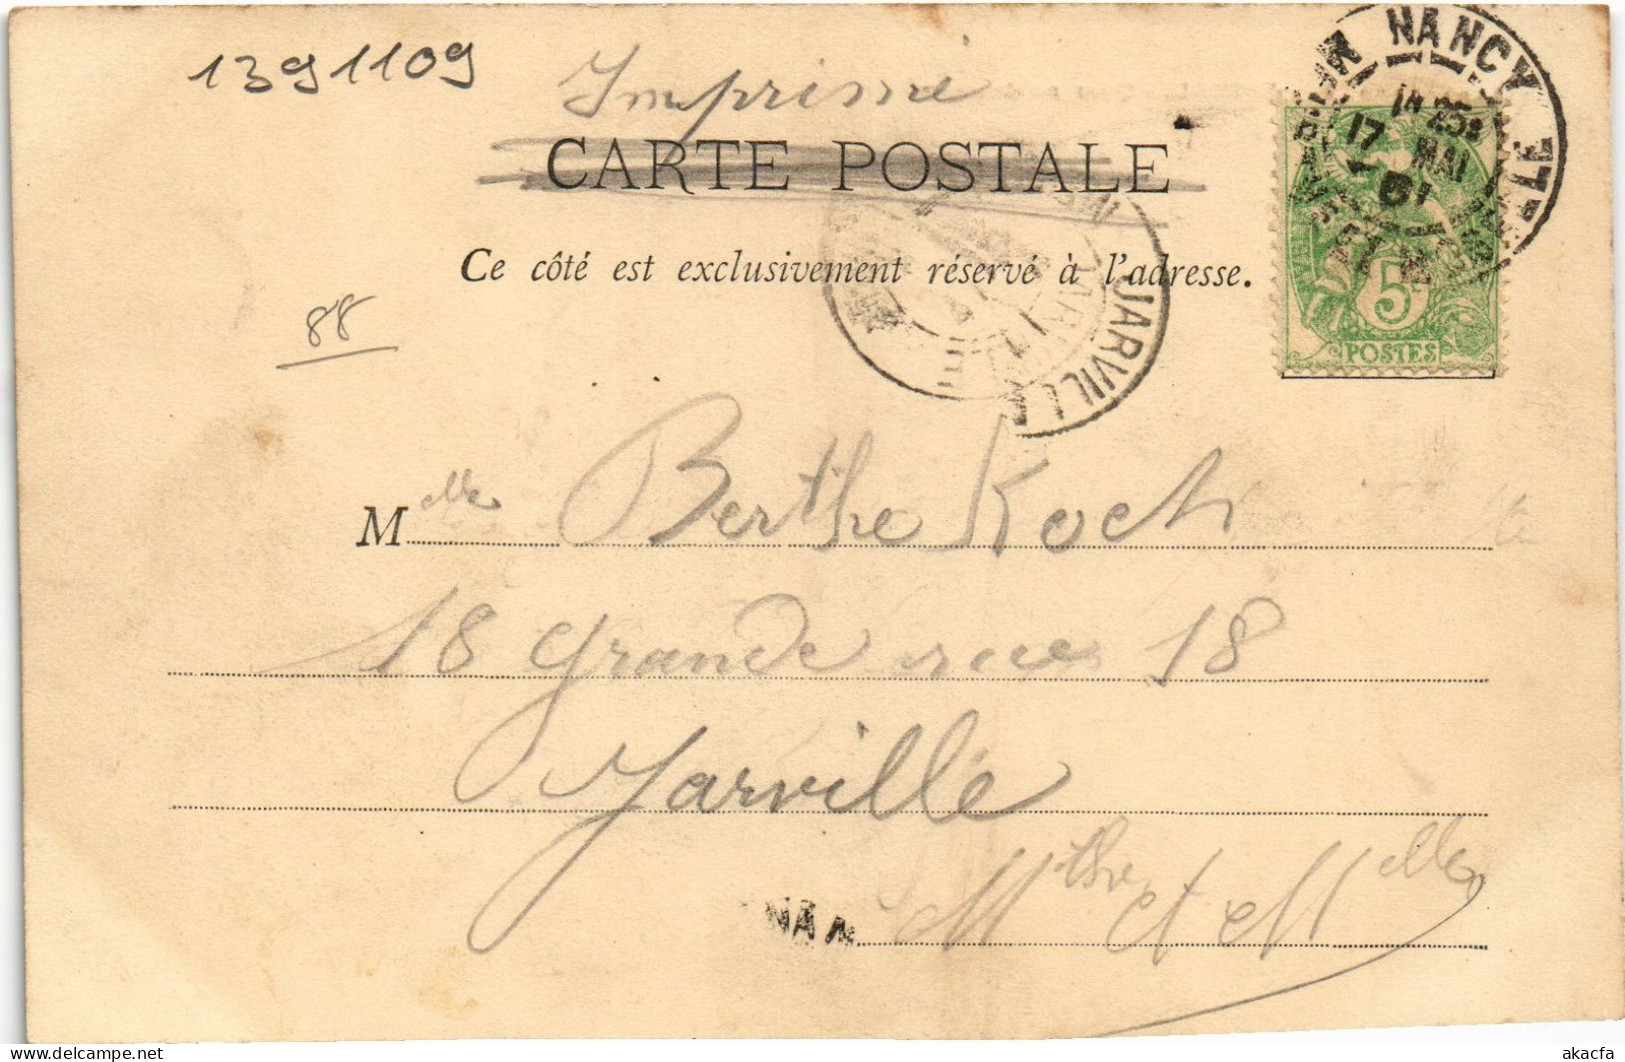 1391109
Imprimé
CARTE POSTALE
Ce côté est exclusivement réservé à l'adresse.
NANCY
17 MAI 01
5
POSTES
JARVILLE
88
Melle Berthe Koch
18 grande rue 18
Jarville
M et Melle
NAN
akacfa